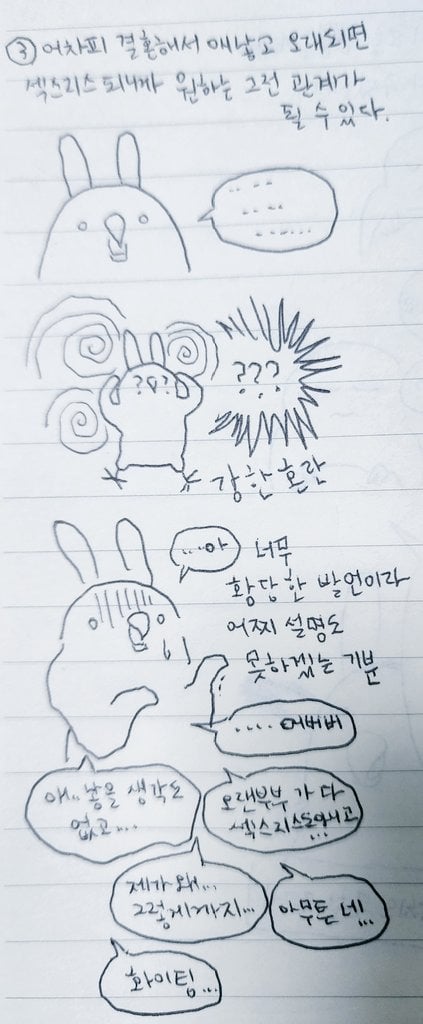 ③ 어차피 결혼해서 애낳고 오래되면
섹스리스 되니까 원하는 그런 관계가
될 수 있다.
...
...
......
???
???
강한 혼란
....아
너무
황당한 발언이라
어찌 설명도
못하겠는 기분
.... 어버버
애.. 낳을 생각도
없고...
오랜부부가 다
섹스리스도아니고
...
제가 왜...
그렇게까지...
아무튼 네...
화이팅...